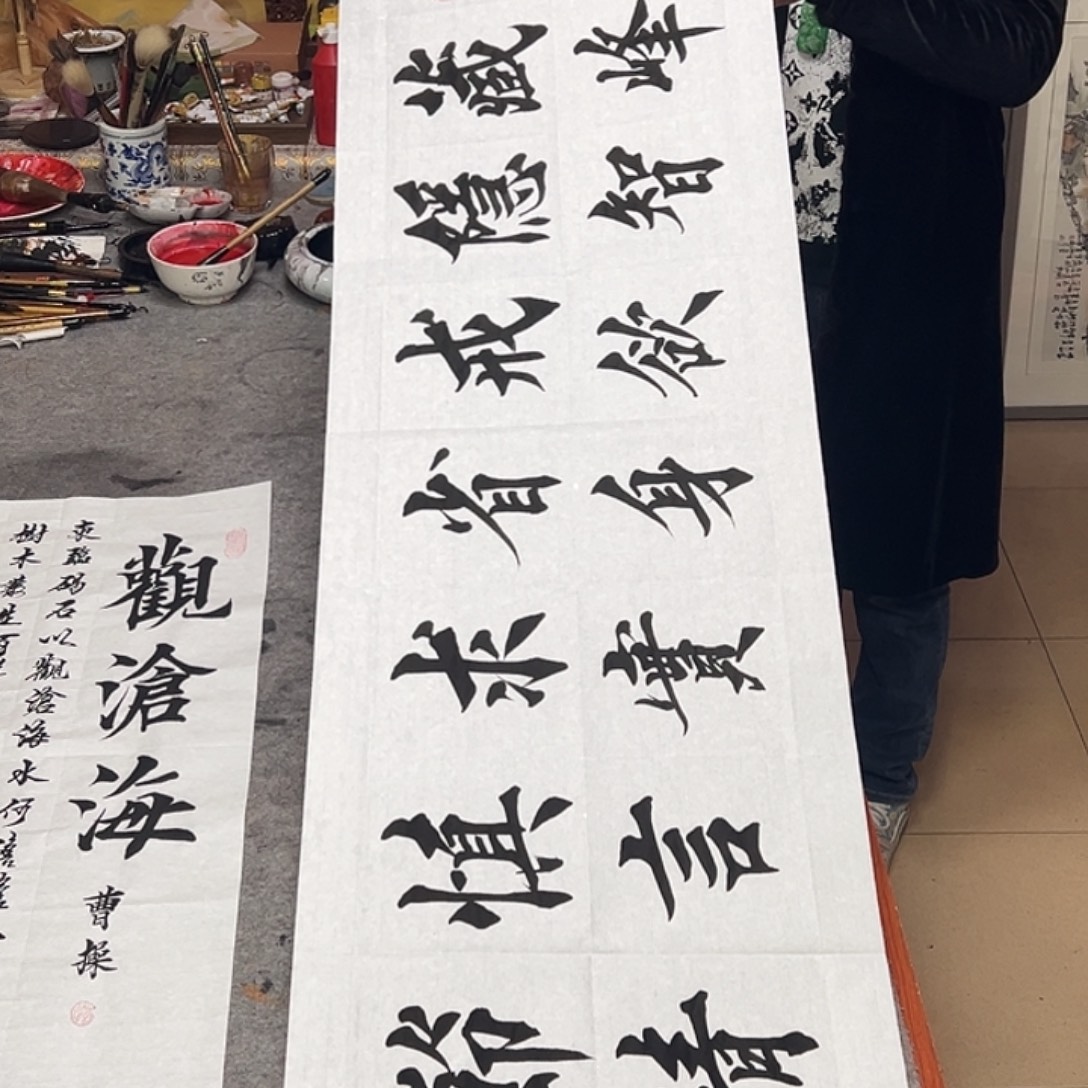 藏峰
隱智
戒欲
省身
求實
慎言
節
觀滄海 曹操
東臨碣石以觀滄海水何澹澹
樹木叢生百